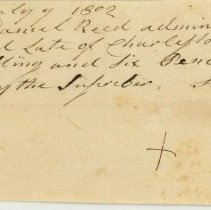 July 9 1802
Daniel Reed admin
Late of Charlesto
lling and Six Penc
by the Subscriber.